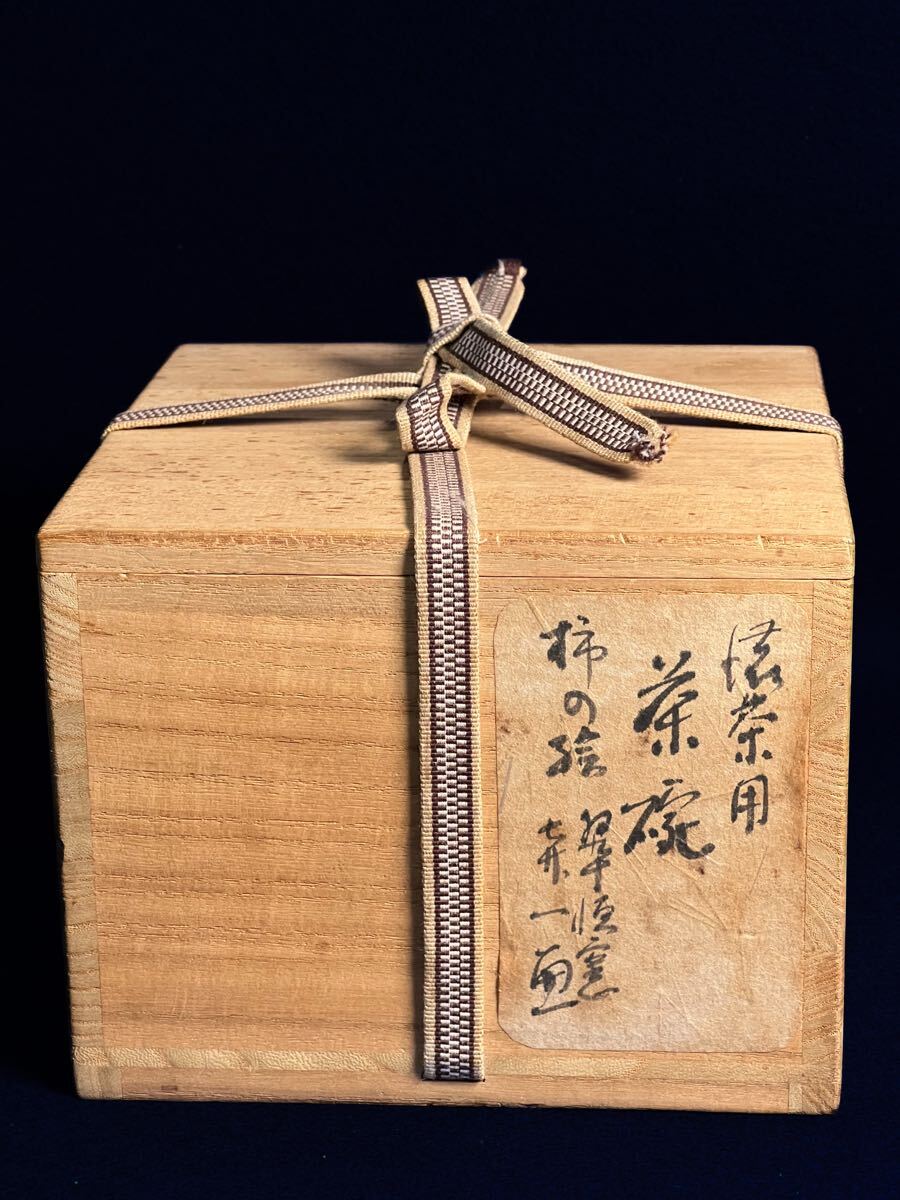 濃茶用
茶碗
柿の絵
翠恒窯
一画